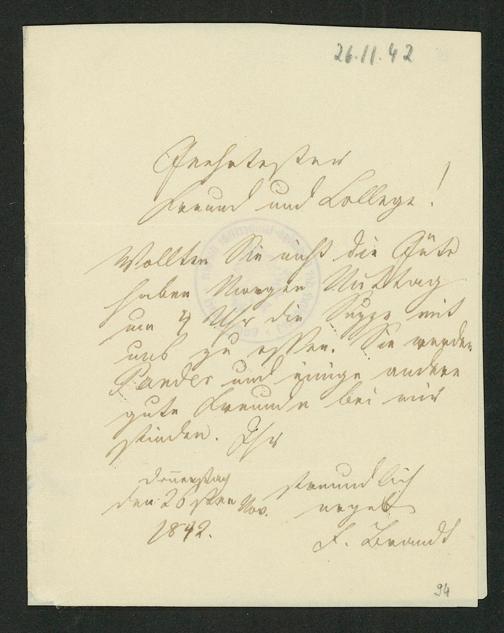 26.11.42
Geehrtester
Freund und College!
Wollten Sie nicht die Güte
haben Morgen Mittag
um 4 Uhr die Suppe mit
uns zu essen. Sie werden
Pander und einige andere
gute Freunde bei mir
finden. Ihr
Donnerstag
freundlich
den 26sten Nov.
ergeb
1842.
F. Brandt
94